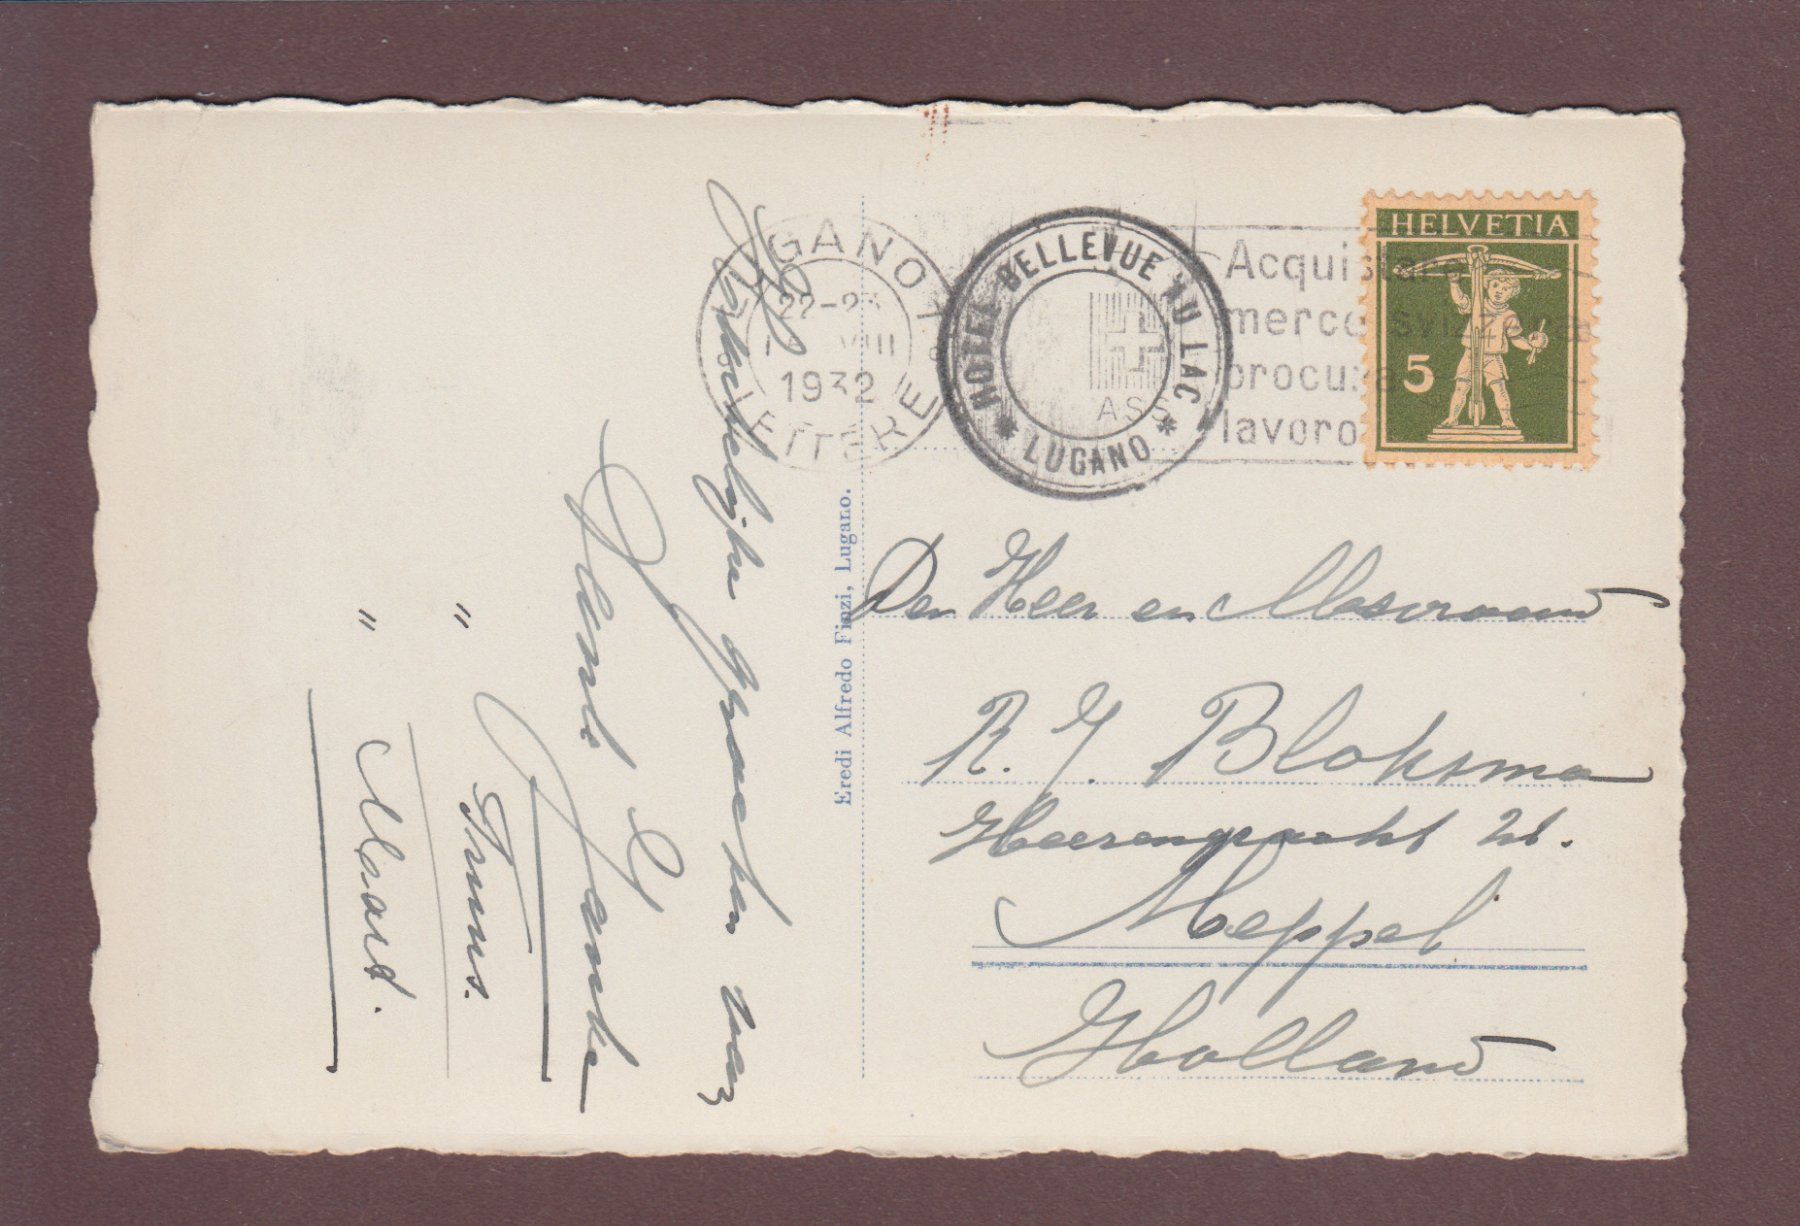 LUGANO 1
22-23
VIII
1932
LETTERE
HOTEL BELLEVUE AU LAC
* LUGANO *
ASS
Acquistate
merce svizzera
procur
lavoro
HELVETIA
5
Hartelijke groeten van
Henk & Janke
" Truus.
" Maart.
Eredi Alfredo Finzi, Lugano.
Den Heer en Mevrouw
R. J. Bloksma
Heerengracht 21.
Meppel
Holland